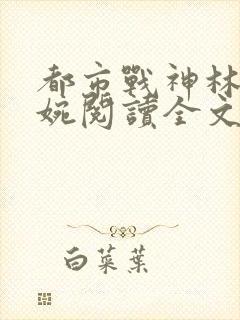 都市戰神林
婉閱讀全文
白菜葉